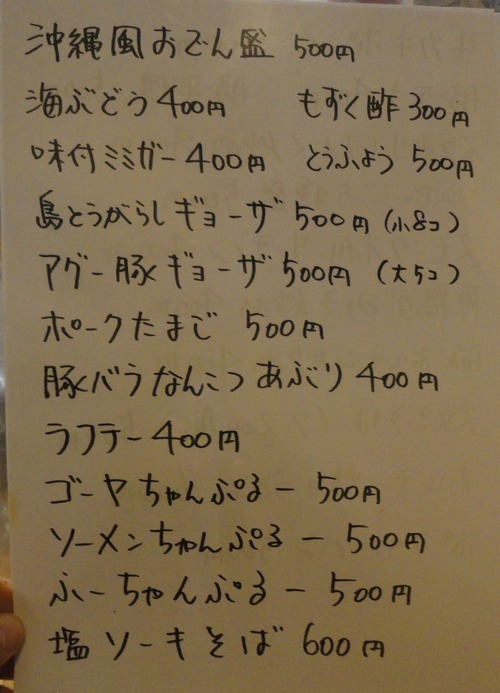 沖縄風おでん盛 500円
海ぶどう 400円 もずく酢 300円
味付ミミガー 400円 とうふよう 500円
島とうがらしギョーザ 500円 (小8コ)
アグー豚ギョーザ 500円 (大5コ)
ポークたまご 500円
豚バラなんこつあぶり 400円
ラフテー 400円
ゴーヤちゃんぷるー 500円
ソーメンちゃんぷるー 500円
ふーちゃんぷるー 500円
塩ソーキそば 600円